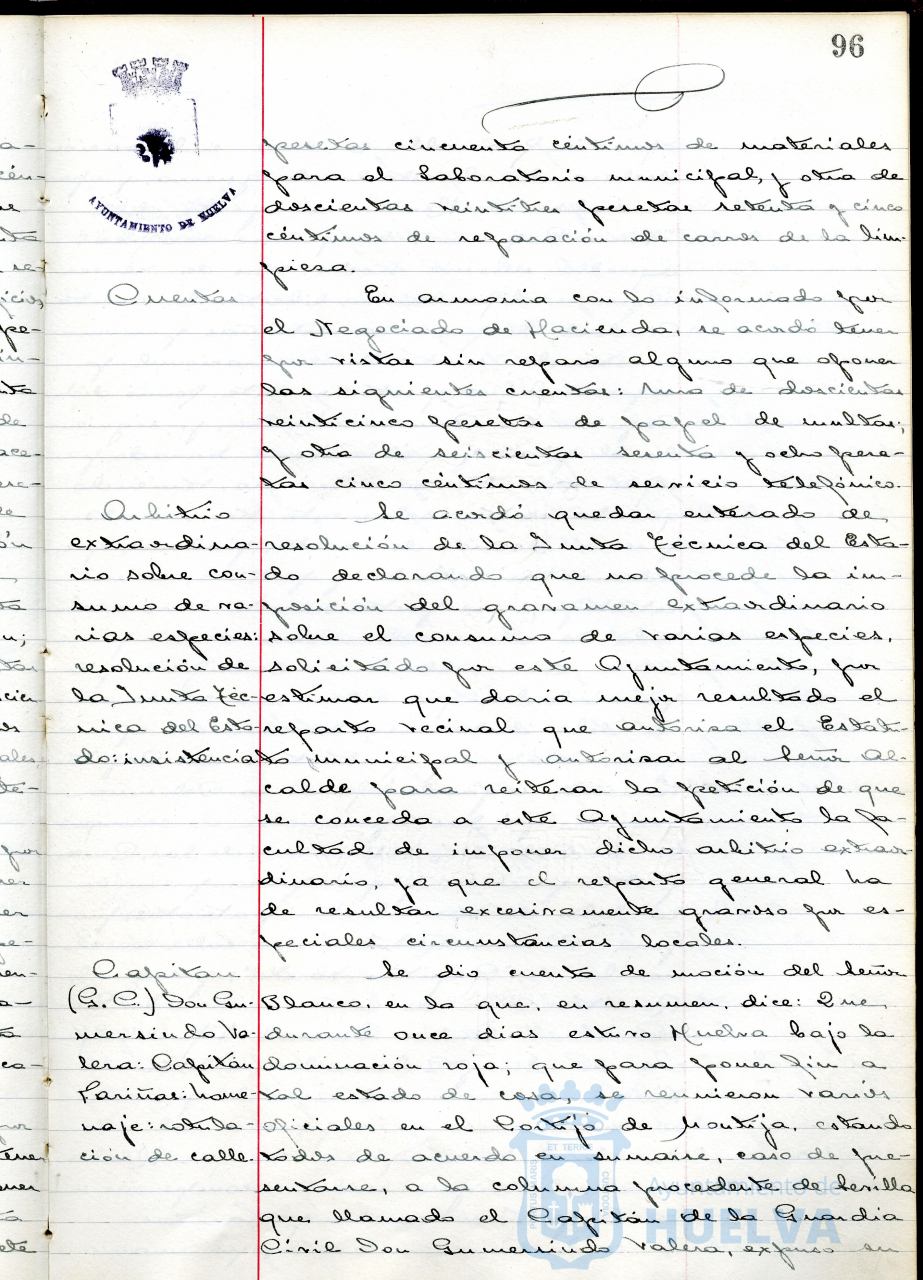 96
AYUNTAMIENTO DE HUELVA
pesetas cincuenta céntimos de materiales
para el Laboratorio municipal, y otra de
doscientas veintitres pesetas setenta y cinco
céntimos de reparación de carros de la lim-
pieza.
Cuentas
En armonia con lo informado por
el Negociado de Hacienda, se acordó tener
por vistas sin reparo alguno que oponer
las siguientes cuentas: Una de doscientas
veinticinco pesetas de papel de multas;
y otra de seiscientas sesenta y ocho pese-
tas cinco céntimos de servicio telefónico.
Arbitrio
extraordina-
rio sobre con-
sumo de va-
rias especies:
resolución de
la Junta Téc-
nica del Esta-
do: insistencia
Se acordó quedar enterado de
resolución de la Junta Técnica del Esta-
do declarando que no procede la im-
posición del gravamen extraordinario
sobre el consumo de varias especies,
solicitado por este Ayuntamiento, por
estimar que daria mejor resultado el
reparto vecinal que autoriza el Estatu-
to municipal y autorizar al Señor Al-
calde para reiterar la petición de que
se conceda a este Ayuntamiento la fa-
cultad de imponer dicho arbitrio extraor-
dinario, ya que el reparto general ha
de resultar excesivamente gravoso por es-
peciales circunstancias locales.
Capitan
(G. C.) Don Gu-
mersindo Va-
lera: Capitán
Fariñas: home-
naje: rotula-
ción de calle.
Se dio cuenta de moción del Señor
Blanco, en la que, en resumen, dice: Que,
durante once dias estuvo Huelva bajo la
dominación roja; que para poner fin a
tal estado de cosa, se reunieron varios
oficiales en el Cortijo de Montija, estando
todos de acuerdo en sumarse, caso de pre-
sentarse, a la columna procedente de Sevilla
que llamado el Capitán de la Guardia
Civil Don Gumersindo Valera, expuso su
Ayuntamiento de
HUELVA